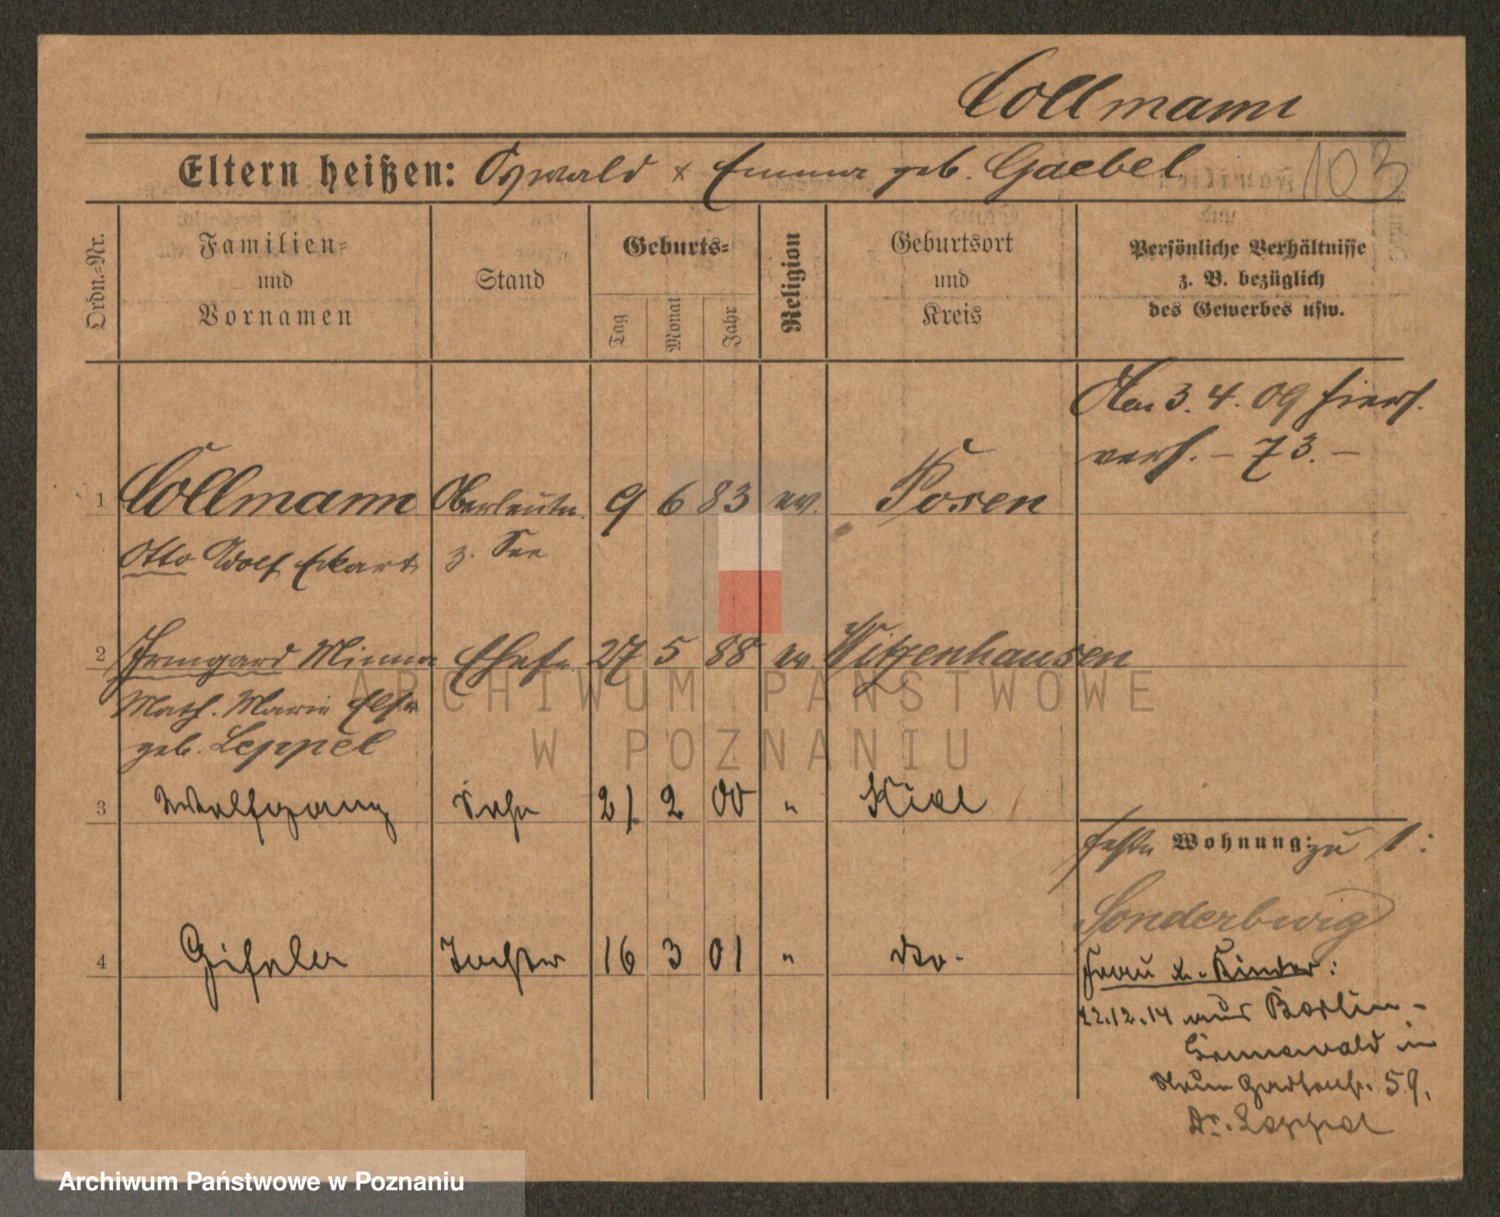 Collmann
Eltern heißen: Oswald & Emma geb. Gaebel
103
Ordn.-Nr.
Familien-
und
Vornamen
Stand
Geburts-
Tag
Monat
Jahr
Religion
Geburtsort
und
Kreis
Persönliche Verhältnisse
z. B. bezüglich
des Gewerbes usw.
Am 3. 4. 09 hiers.
verh. – 73. –
1 Collmann Oberleutn. 9 6 83 ev. Posen
Otto Adolf Eckart z. See
2 Irmgard Minna Ehefr. 27 5 88 ev Witzenhausen
Math. Marie Else
geb. Leppel
3 Wolfgang Sohn 21. 2 00 " Kiel
feste Wohnung: zu 1:
Sonderburg
4 Gisela Tochter 16 3 01 " do.
Frau u. Kinder:
22.12.14 aus Berlin-
Grunewald in
59.
Dr. Leppel
ARCHIWUM PAŃSTWOWE
W POZNANIU
Archiwum Państwowe w Poznaniu